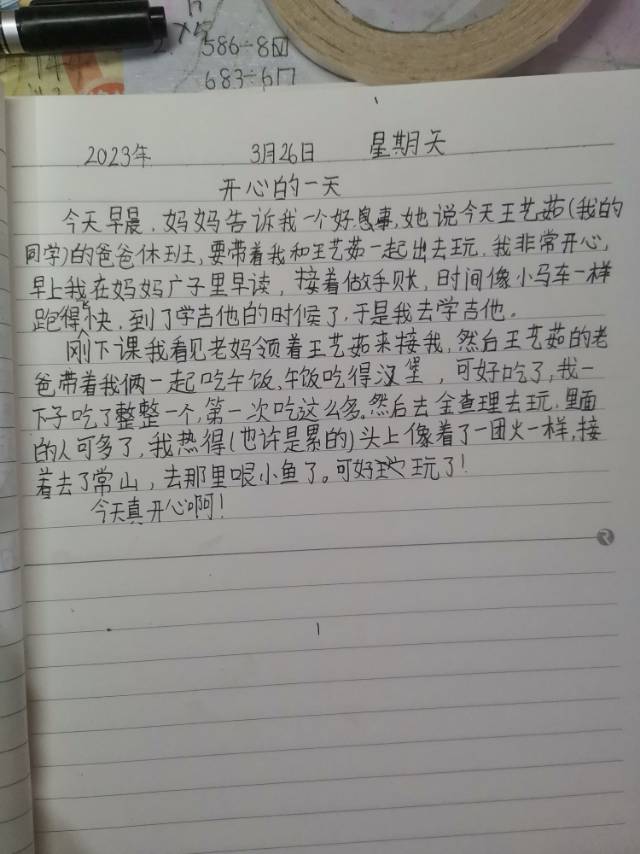 586÷8
683÷6
2023年 3月26日 星期天
开心的一天
今天早晨,妈妈告诉我一个好息事,她说今天王艺茹(我的
同学)的爸爸休班,要带着我和王艺茹一起出去玩,我非常开心,
早上我在妈妈广子里早读,接着做手账,时间像小马车一样
跑得快,到了学吉他的时候了,于是我去学吉他。
刚下课我看见老妈领着王艺茹来接我,然后王艺茹的老
爸带着我俩一起吃午饭,午饭吃得汉堡,可好吃了,我一
下子吃了整整一个,第一次吃这么多。然后去金查理去玩,里面
的人可多了,我热得(也许是累的)头上像着了一团火一样,接
着去了常山,去那里喂小鱼了。可好玩了!
今天真开心啊!